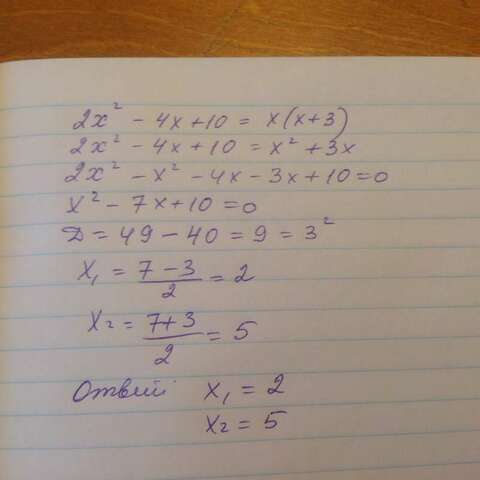 2x² - 4x + 10 = x(x+3)
2x² - 4x + 10 = x² + 3x
2x² - x² - 4x - 3x + 10 = 0
x² - 7x + 10 = 0
Д = 49 - 40 = 9 = 3²
x₁ = (7-3)/2 = 2
x₂ = (7+3)/2 = 5
Ответ: x₁ = 2
x₂ = 5